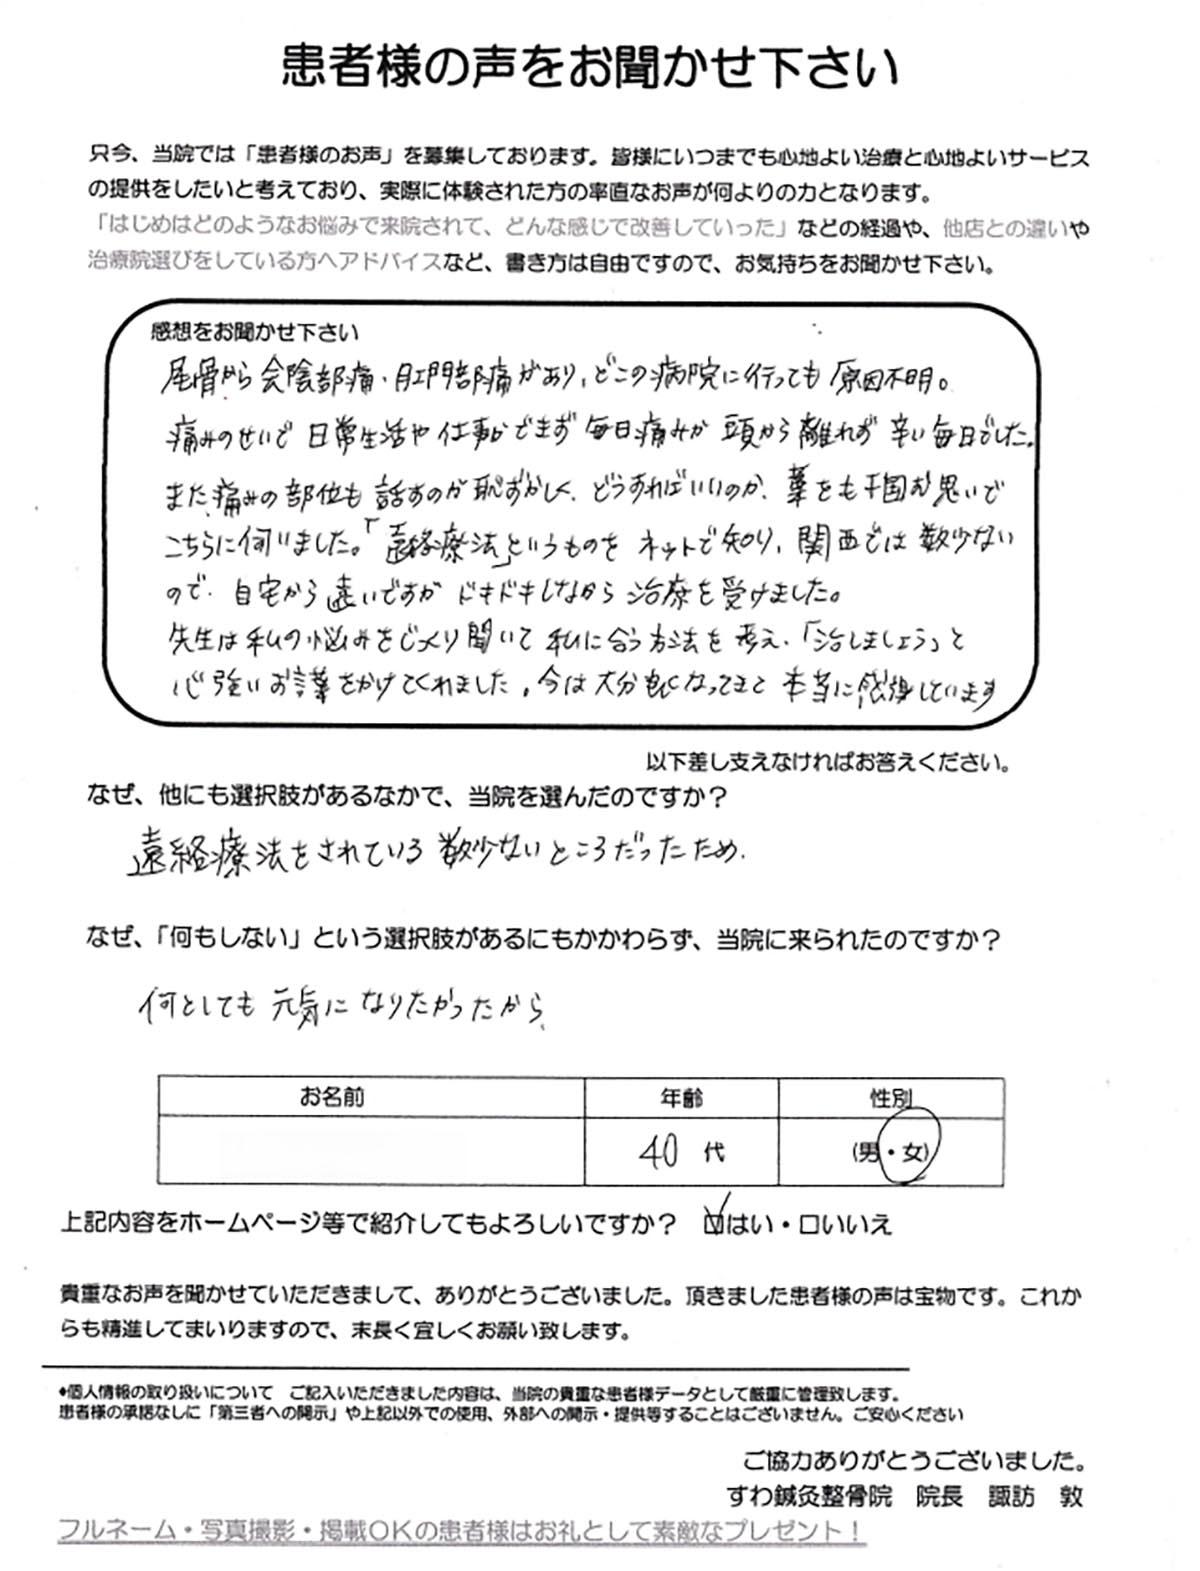 患者様の声をお聞かせ下さい
只今、当院では「患者様のお声」を募集しております。皆様にいつまでも心地よい治療と心地よいサービス
の提供をしたいと考えており、実際に体験された方の率直なお声が何よりの力となります。
「はじめはどのようなお悩みで来院されて、どんな感じで改善していった」などの経過や、他店との違いや
治療院選びをしている方へアドバイスなど、書き方は自由ですので、お気持ちをお聞かせ下さい。
感想をお聞かせ下さい
尾骨から会陰部痛・肛門部痛があり、どこの病院に行っても原因不明。
痛みのせいで日常生活や仕事ができず毎日痛みが頭から離れず辛い毎日でした。
また痛みの部位も話すのが恥ずかしく、どうすればいいのか、藁をも干図む思いで
こちらに伺いました。「遠絡療法」というものをネットで知り、関西では数少ない
ので、自宅から遠いですがドキドキしながら治療を受けました。
先生は私の悩みをじっくり聞いて私に合う方法を考え、「治しましょう」と
心強いお言葉をかけてくれました。今は大分良くなってきて本当に感謝しています
以下差し支えなければお答えください。
なぜ、他にも選択肢があるなかで、当院を選んだのですか？
遠絡療法をされている数少ないところだったため。
なぜ、「何もしない」という選択肢があるにもかかわらず、当院に来られたのですか？
何としても元気になりたかったから。
お名前 年齢 性別
40 代 (男・女)
上記内容をホームページ等で紹介してもよろしいですか？ ☑はい・□いいえ
貴重なお声を聞かせていただきまして、ありがとうございました。頂きました患者様の声は宝物です。これか
らも精進してまいりますので、末長く宜しくお願い致します。
♦個人情報の取り扱いについて ご記入いただきました内容は、当院の貴重な患者様データとして厳重に管理致します。
患者様の承諾なしに「第三者への開示」や上記以外での使用、外部への開示・提供等することはございません。ご安心ください
ご協力ありがとうございました。
すわ鍼灸整骨院 院長 諏訪 敦
フルネーム・写真撮影・掲載OKの患者様はお礼として素敵なプレゼント！